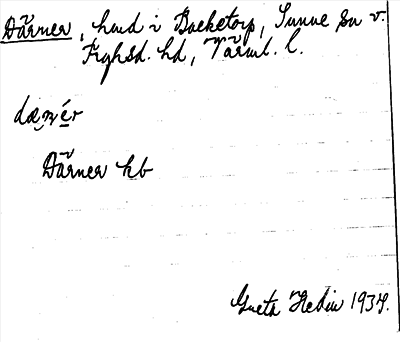 Därner, hmd i Backetorp, Sunne sn v.
Fryksd. hd, Värml. l.
dæ̣ṇér
Därner kb
Greta Hedin 1934.